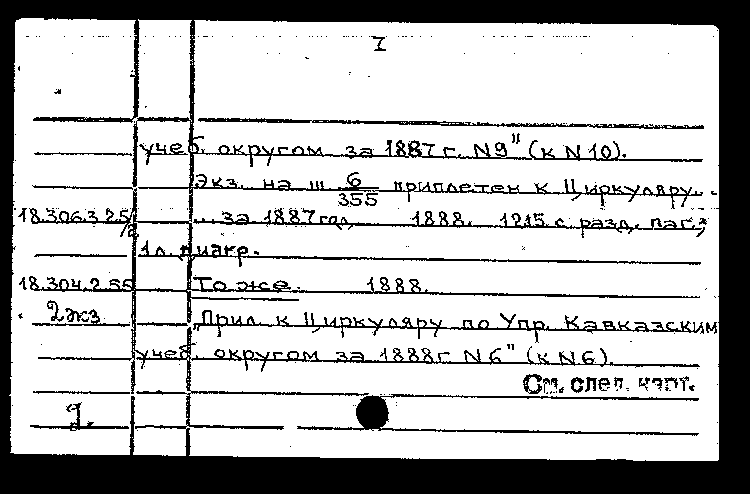 I
учеб. округом за 1887 г. N9" (к N 10).
Экз. на ш 6/355 приплетен к Циркуляру..
18.306.3.25/2 ...за 1887 год 1888. 1215 с разд. паг.;
1 л. диагр.
18.304.2.55 То же. 1888.
2 экз. "Прил. к Циркуляру по Упр. Кавказским
учеб. округом за 1888 г N6" (к N6).
См. след. карт.